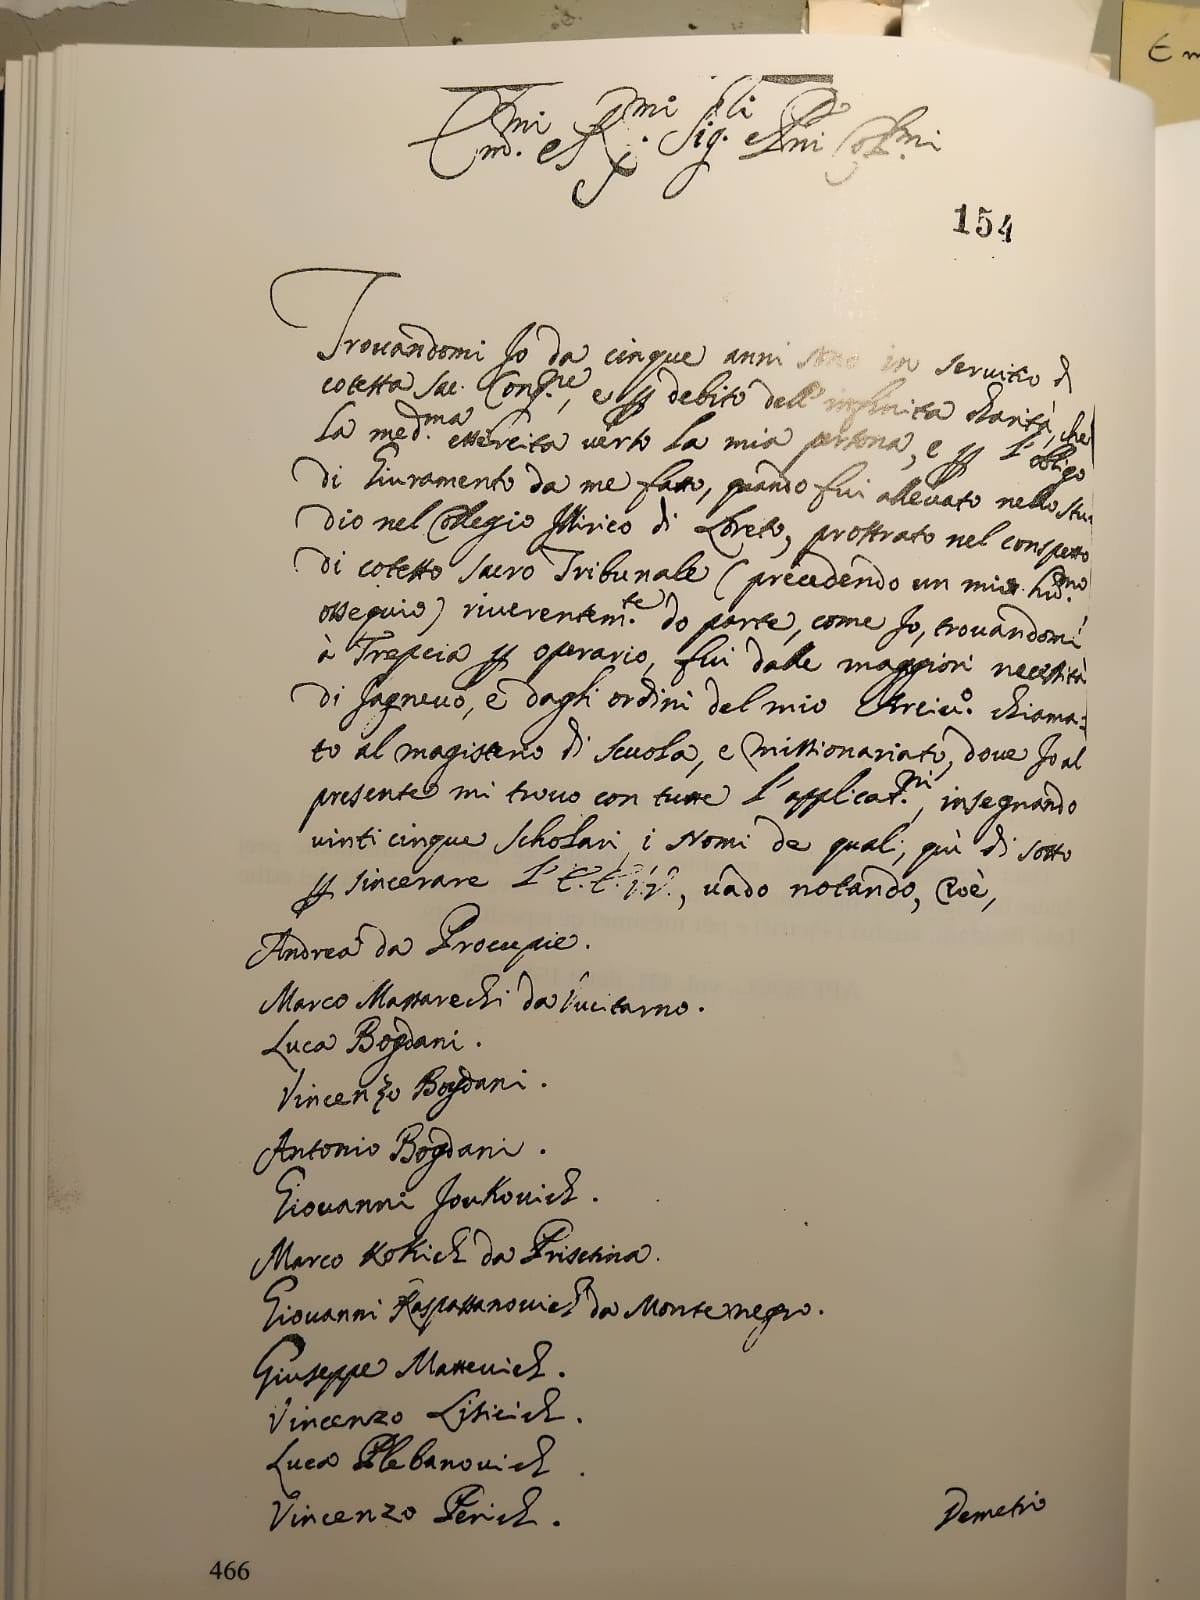 Em.mi e R.mi Sig.
154
Trouandomi Jo da cinque anni sono in seruitio di
cotesta Sac. Cong.ne, e p debito dell' infinita charità, che
la med.ma essercita uerso la mia persona, e p l' obligo
di Giuramento da me fatto, quando fui alleuato nello stu-
dio nel Collegio Illirico di Loreto, prostrato nel conspetto
di cotesto Sacro Tribunale (precedendo un mio hu.mo
ossequio) riuerentem.te do parte, come Jo, trouandomi
à Trepcia p operario, fui dalle maggiori necessità
di Jagneuo, e dagli ordini del mio Arciu.o chiama-
to al magisterio di scuola, e missionariato, doue Jo al
presente mi trouo con tutte l' applicat.ni, insegnando
uinti cinque Scholari, i Nomi de quali, quì di sotto
p sincerare l' uado notando, Cioè,
Andrea da Procupie.
Marco Massarechi da Vucitarno.
Luca Bogdani.
Vincenzo Bogdani.
Antonio Bogdani.
Giouanni Joukouich.
Marco Kokich da Prisctina.
Giouanni Raspassanouich da Monte negro.
Giuseppe Matteuich.
Vincenzo Lisicich.
Luca Plebanouich.
Vincenzo Perich.
Demetrio
466